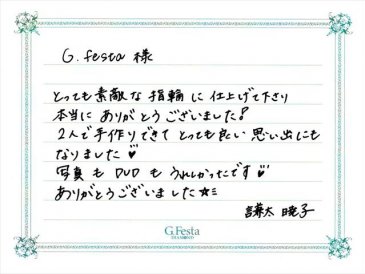 G. festa 様
とっても素敵な指輪に仕上げて下さり
本当にありがとうございました!
2人で手作りできてとっても良い思い出にも
なりました♡
写真もDVDもうれしかったです♡
ありがとうございました☆ミ
謙太 暁子
G.Festa
DIAMOND